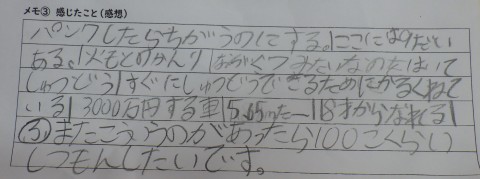 メモ③ 感じたこと(感想)
パンクしたらちがうのにする。ここにはりたい
ある。火もとのかんり みたいなのたはいて
しゅつどう すぐにしゅつどうできるためにかるくねて
いる 3000万円する車 18才からなれる
③またこういうのがあったら100こくらい
しつもんしたいです。